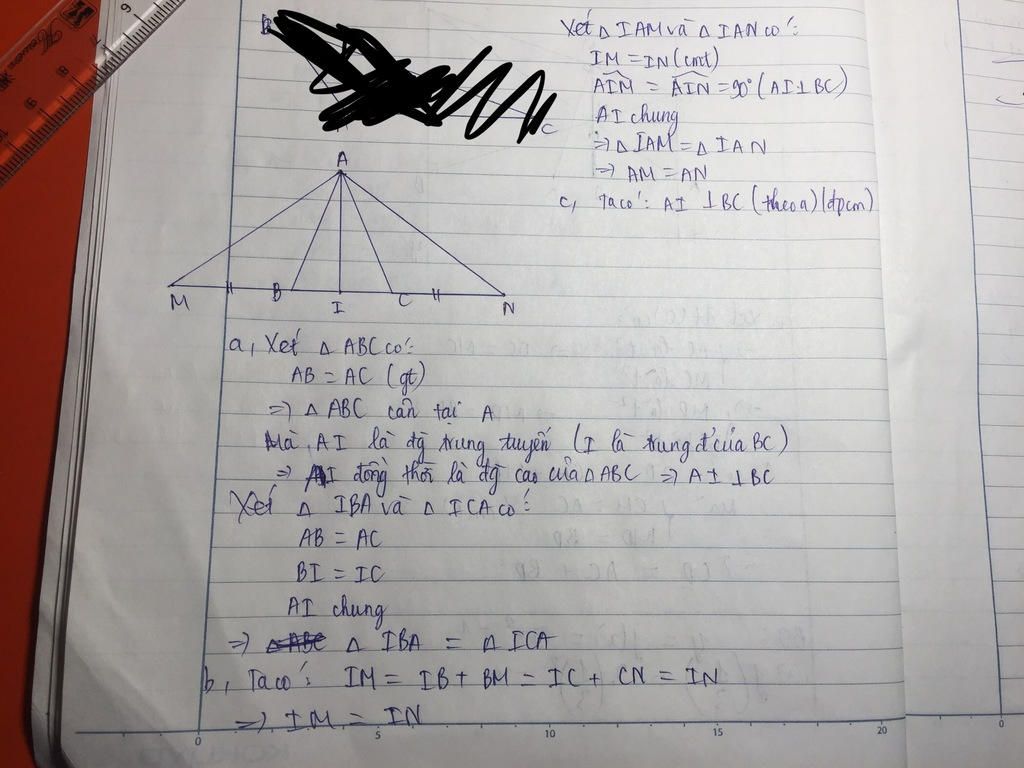 B
C
A
M
B
I
C
N
a, Xét Δ ABC có:
AB = AC (gt)
=> Δ ABC cân tại A
Mà AI là đg̃ trung tuyến (I là trung đ' của BC)
=> AI đồng thời là đg̃ cao của Δ ABC => AI ⊥ BC
Xét Δ IBA và Δ ICA có:
AB = AC
BI = IC
AI chung
=> Δ IBA = Δ ICA
b, Ta có: IM = IB + BM = IC + CN = IN
=> IM = IN
Xét Δ IAM và Δ IAN có:
IM = IN (cmt)
AIM = AIN = 90° (AI ⊥ BC)
AI chung
=> Δ IAM = Δ IAN
=> AM = AN
c, Ta có: AI ⊥ BC (theo a) (đpcm)
0
5
10
15
20
0